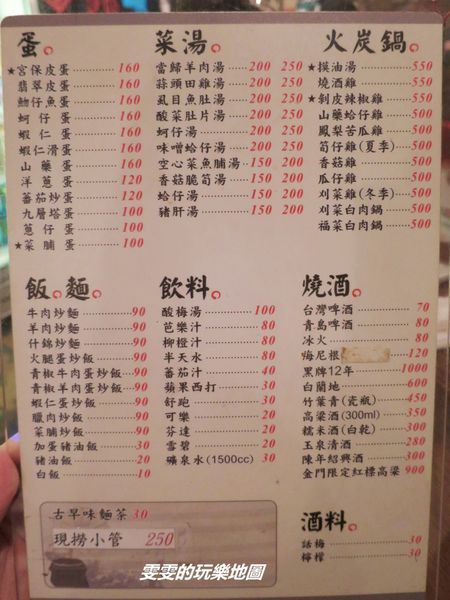 蛋
★宮保皮蛋 160
翡翠皮蛋 160
魩仔魚蛋 160
蚵仔蛋 160
蝦仁蛋 160
蝦仁滑蛋 160
山藥蛋 160
洋蔥蛋 120
蕃茄炒蛋 120
九層塔蛋 100
蔥仔蛋 100
★菜脯蛋 100
菜湯
當歸羊肉湯 200 250
蒜頭田雞湯 200 250
虱目魚肚湯 200 250
酸菜肚片湯 200 250
蚵仔湯 200 250
味噌蛤仔湯 200 250
空心菜魚脯湯 150 200
香菇脆筍湯 150 200
蛤仔湯 150 200
豬肝湯 150 200
火炭鍋
★摸油湯 550
燒酒雞 550
★剝皮辣椒雞 550
山藥蛤仔雞 500
鳳梨苦瓜雞 500
筍仔雞(夏季) 500
香菇雞 500
瓜仔雞 500
刈菜雞(冬季) 500
刈菜白肉鍋 500
福菜白肉鍋 500
飯。麵
牛肉炒麵 90
羊肉炒麵 90
什錦炒麵 90
火腿蛋炒飯 90
青椒牛肉蛋炒飯 90
青椒羊肉蛋炒飯 90
蝦仁蛋炒飯 90
臘肉炒飯 90
菜脯炒飯 90
加蛋豬油飯 30
豬油飯 20
白飯 10
飲料
酸梅湯 100
芭樂汁 80
柳橙汁 80
半天水 80
蕃茄汁 40
蘋果西打 30
舒跑 30
可樂 20
芬達 20
雪碧 20
礦泉水(1500cc) 30
燒酒
台灣啤酒 70
青島啤酒 80
冰火 80
海尼根 120
黑牌12年 1000
白蘭地 600
竹葉青(瓷瓶) 450
高粱酒(300ml) 350
糯米酒(白乾) 300
玉泉清酒 280
陳年紹興酒 300
金門限定紅標高粱 900
古早味麵茶 30
現撈小管 250
酒料
話梅 30
檸檬 30
雯雯的玩樂地圖